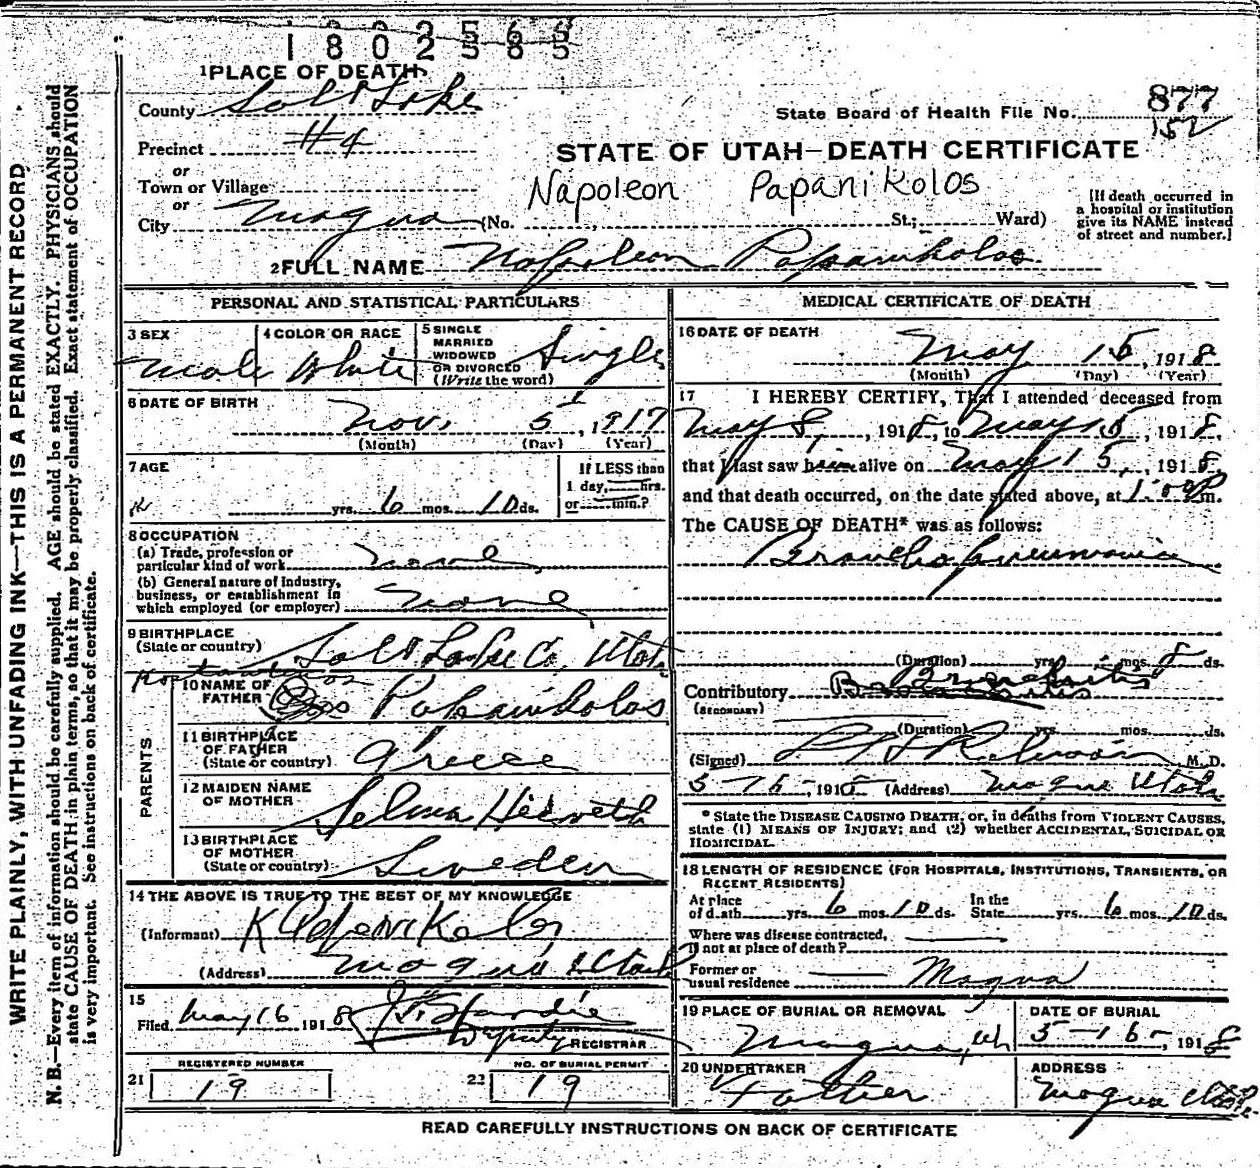 1802565
1 PLACE OF DEATH
County Salt Lake
State Board of Health File No. 877
152
Precinct #4
STATE OF UTAH—DEATH CERTIFICATE
or
Town or Village
Napoleon Papanikolos
or
City Magna (No. St.; Ward)
[If death occurred in
a hospital or institution
give its NAME instead
of street and number.]
2 FULL NAME Napoleon Papanikolos
PERSONAL AND STATISTICAL PARTICULARS
3 SEX Male
4 COLOR OR RACE White
5 SINGLE
MARRIED
WIDOWED
OR DIVORCED
(Write the word) Single
6 DATE OF BIRTH
Nov. 5, 1917
(Month) (Day) (Year)
7 AGE
yrs. 6 mos. 10 ds.
If LESS than
1 day, hrs.
or min.?
8 OCCUPATION
(a) Trade, profession or
particular kind of work none
(b) General nature of industry,
business, or establishment in
which employed (or employer) none
9 BIRTHPLACE
(State or country) Salt Lake Co, Utah
10 NAME OF
FATHER Papanikolos
11 BIRTHPLACE
OF FATHER
(State or country) Greece
PARENTS
12 MAIDEN NAME
OF MOTHER Selma
13 BIRTHPLACE
OF MOTHER
(State or country) Sweden
14 THE ABOVE IS TRUE TO THE BEST OF MY KNOWLEDGE
(Informant) K Papanikolos
(Address) Magna Utah
15
Filed May 16 1918
Deputy REGISTRAR
REGISTERED NUMBER
21 19
NO. OF BURIAL PERMIT
22 19
MEDICAL CERTIFICATE OF DEATH
16 DATE OF DEATH
May 15, 1918
(Month) (Day) (Year)
17 I HEREBY CERTIFY, That I attended deceased from
May 8, 1918, to May 15, 1918,
that I last saw him alive on May 15, 1918,
and that death occurred, on the date stated above, at 1:00 P m.
The CAUSE OF DEATH* was as follows:
Broncho pneumonia
(Duration) yrs. mos. 8 ds.
Bronchitis
Contributory
(SECONDARY)
(Duration) yrs. mos. ds.
(Signed) M. D.
5-16-, 191 (Address) Magna Utah
* State the DISEASE CAUSING DEATH, or, in deaths from VIOLENT CAUSES,
state (1) MEANS OF INJURY; and (2) whether ACCIDENTAL, SUICIDAL OR
HOMICIDAL.
18 LENGTH OF RESIDENCE (FOR HOSPITALS, INSTITUTIONS, TRANSIENTS, OR
RECENT RESIDENTS)
At place
of death yrs. 6 mos. 10 ds.
In the
State yrs. 6 mos. 10 ds.
Where was disease contracted,
if not at place of death?
Former or
usual residence Magna
19 PLACE OF BURIAL OR REMOVAL
Magna, Ut
DATE OF BURIAL
5-16-, 1918
20 UNDERTAKER
Father
ADDRESS
Magna Utah
READ CAREFULLY INSTRUCTIONS ON BACK OF CERTIFICATE
WRITE PLAINLY, WITH UNFADING INK—THIS IS A PERMANENT RECORD
N. B.—Every item of information should be carefully supplied. AGE should be stated EXACTLY. PHYSICIANS should
state CAUSE OF DEATH in plain terms, so that it may be properly classified. Exact statement of OCCUPATION
is very important. See instructions on back of certificate.